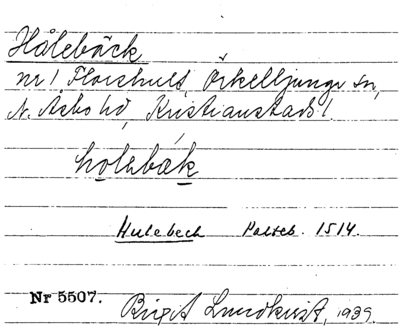 Hålebäck
nr 1 Florshult, Örkelljunga sn,
N. Åsbo hd, Kristianstads l
holabák
Hulebech Palteb. 1514.
Nr 5507. Birgit Lundkvist, 1939.